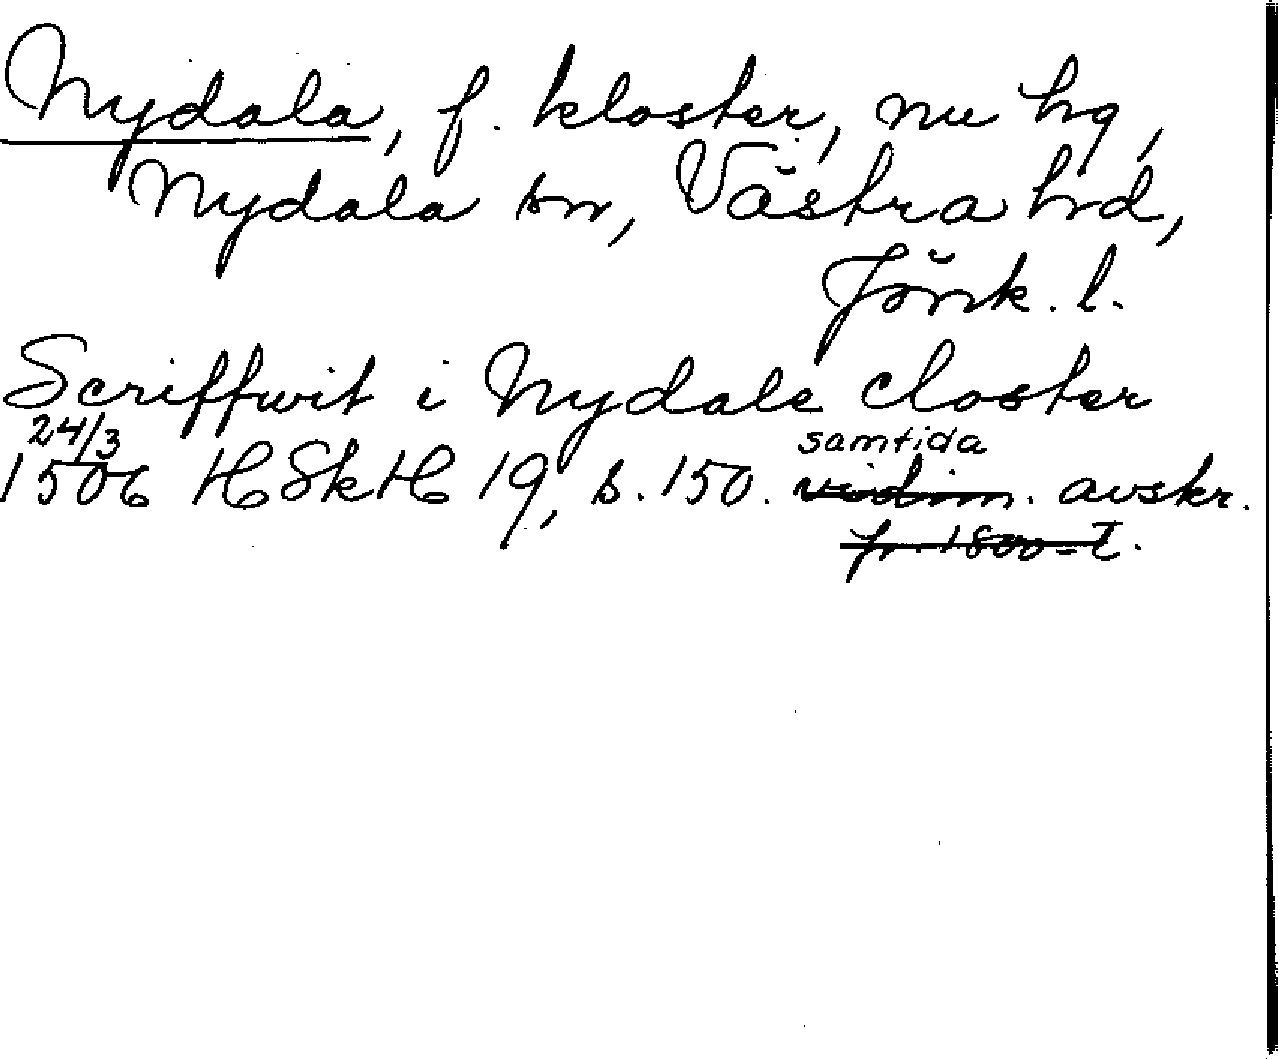 Nydala, f. kloster, nu hg,
Nydala sn, Västra hd,
Jönk. l.
Scriffwit i Nydale closter
24/3 samtida
1506 HSkH 19, s. 150. vidim. avskr.
fr. 1800-t.